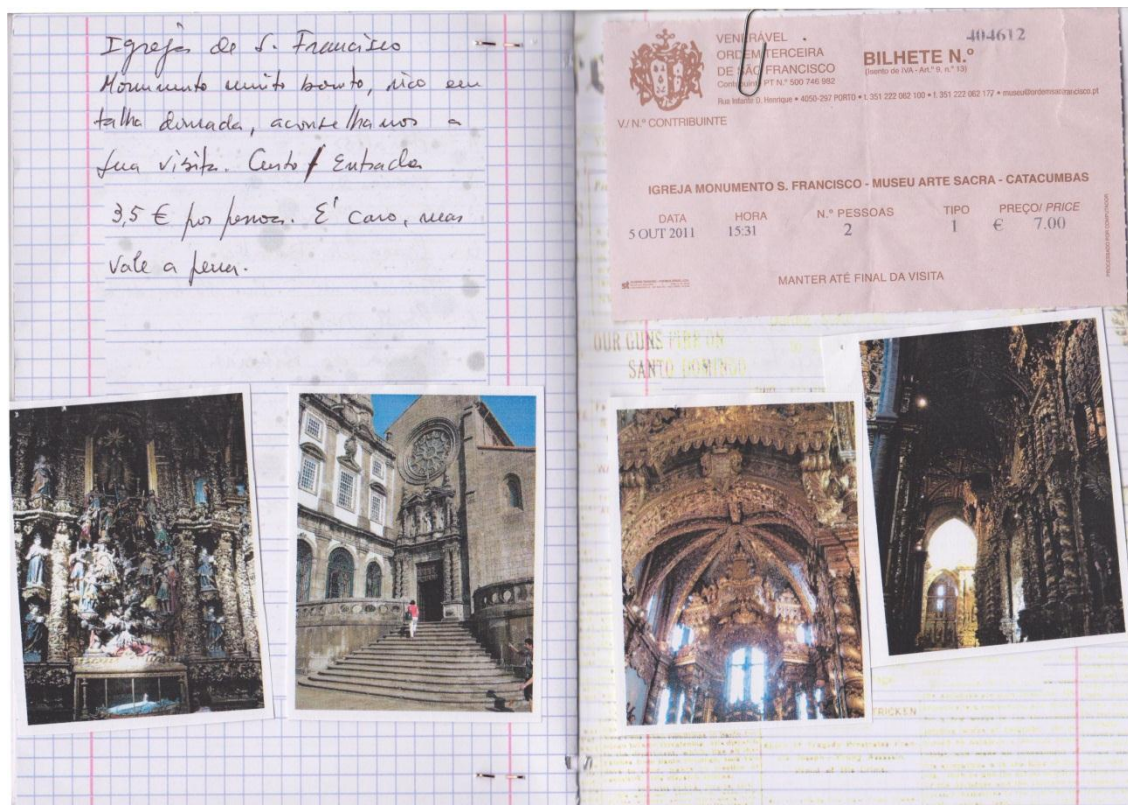 Igreja de S. Francisco
Monumento muito bonito, rico em
talha dourada, aconselhamos a
sua visita. Custo / Entrada
3,5 € por pessoa. É caro, mas
vale a pena.
VENERÁVEL
ORDEM TERCEIRA
DE SÃO FRANCISCO
Contribuinte PT N.º 500 746 982
404612
BILHETE N.º
(Isento de IVA - Art.º 9, n.º 13)
Rua Infante D. Henrique • 4050-297 PORTO • t. 351 222 062 100 • f. 351 222 062 177 • museu@ordemsaofrancisco.pt
V/ N.º CONTRIBUINTE
IGREJA MONUMENTO S. FRANCISCO - MUSEU ARTE SACRA - CATACUMBAS
DATA HORA N.º PESSOAS TIPO PREÇO/ PRICE
5 OUT 2011 15:31 2 1 € 7.00
MANTER ATÉ FINAL DA VISITA
PROCESSADO POR COMPUTADOR
OUR GUNS FIRE ON
SANTO DOMINGO
TRICKEN